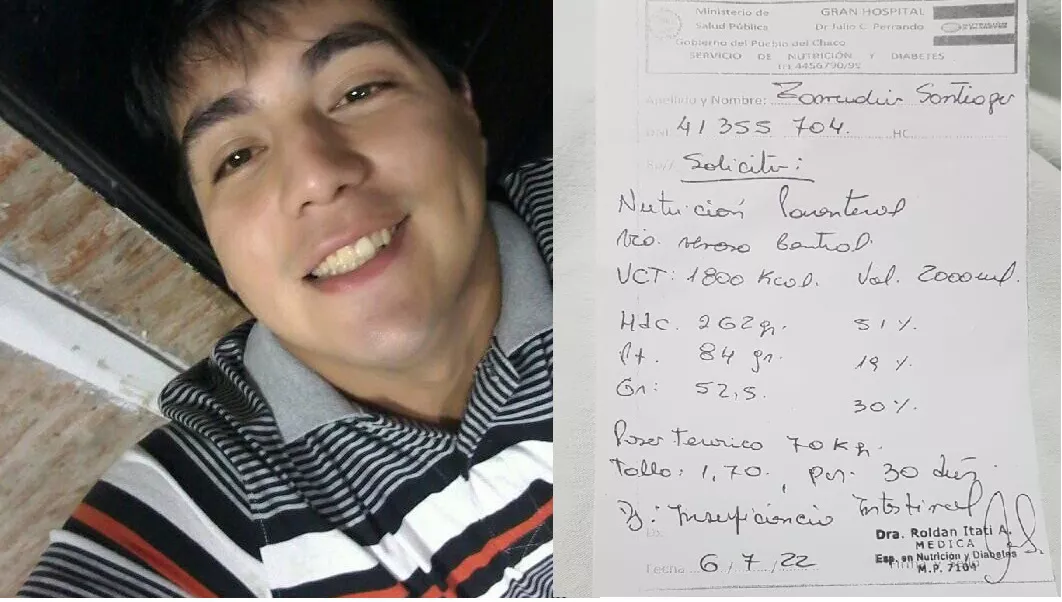 Ministerio de
Salud Pública
GRAN HOSPITAL
Dr Julio C. Perrando
Gobierno del Pueblo del Chaco
SERVICIO DE NUTRICIÓN Y DIABETES
Apellido y Nombre: Zamudio Santiago
41 355 704. HC
Solicito:
Nutrición Parenteral
Vía venosa Central.
VCT: 1800 Kcal. Vol. 2000 ml.
Hdc. 262 gr. 51 %.
Pt. 84 gr. 19 %.
Gr: 52,5. 30 %.
Peso Teorico 70 kg.
Talla: 1,70. por: 30 días.
D: Insuficiencia Intestinal
Dra. Roldan Itati A.
MEDICA
Esp. en Nutricion y Diabetes
M.P. 7104
Fecha 6 / 7 / 22